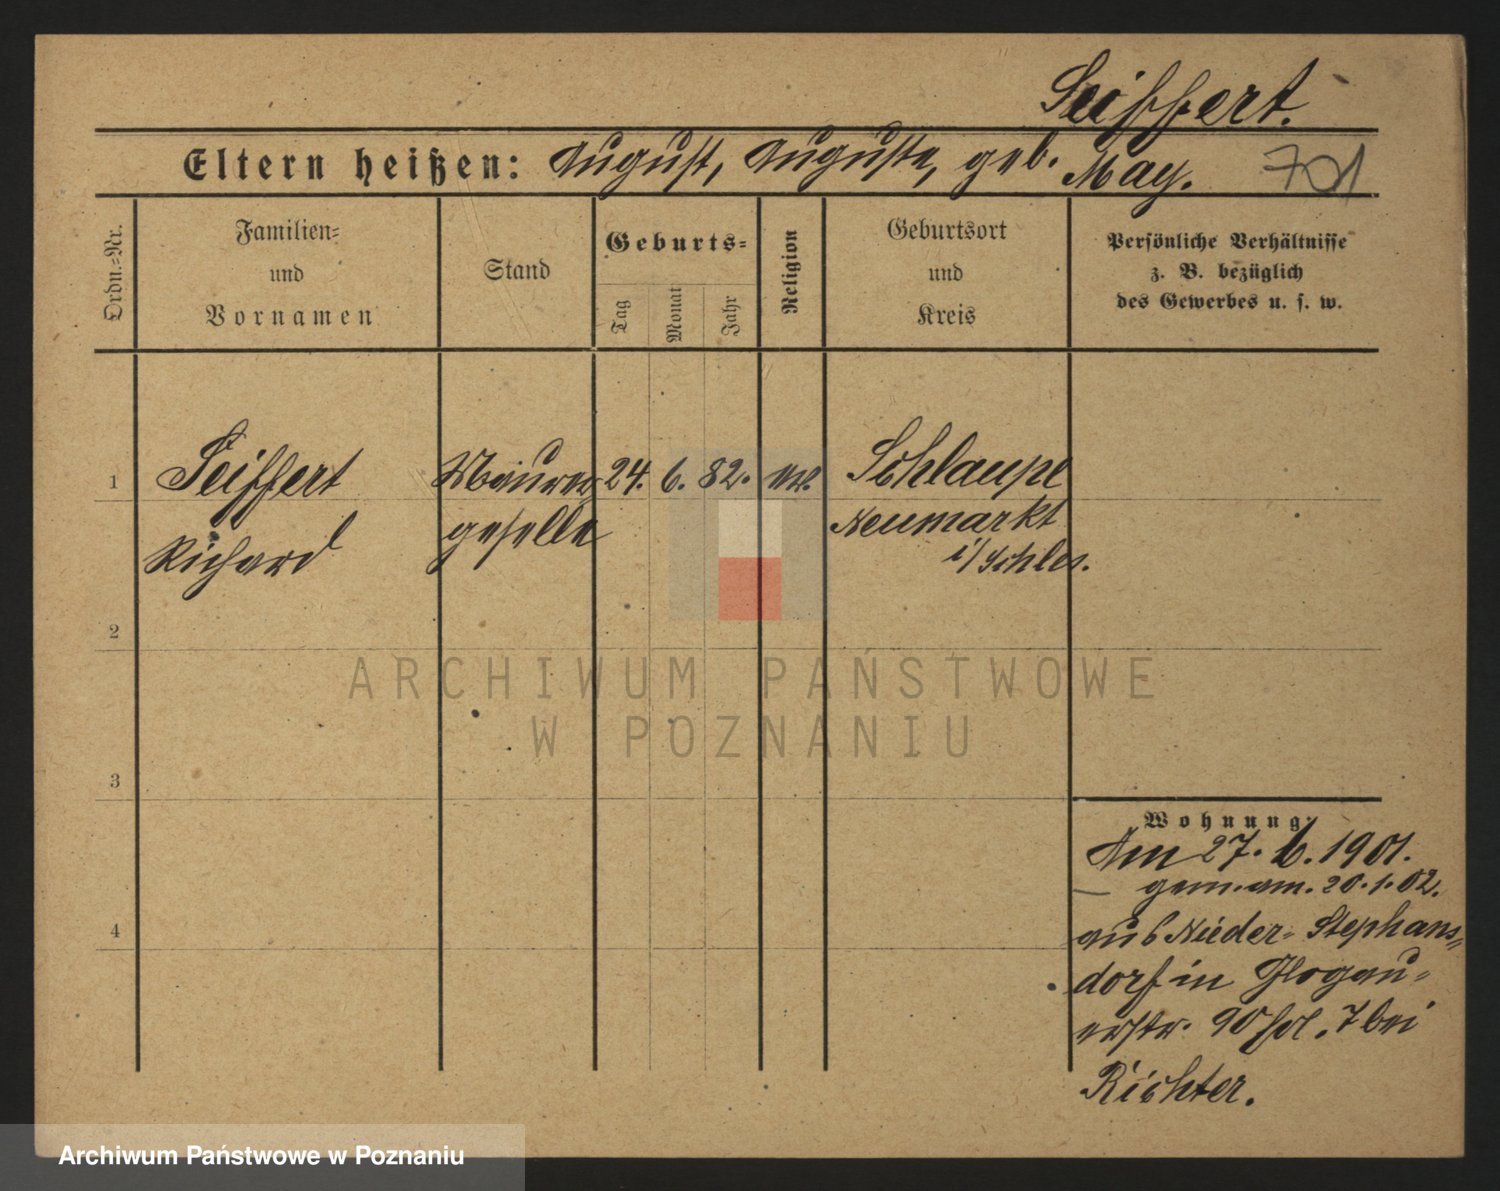 Seiffert.
Eltern heißen: August, Auguste, geb. May. 701
Ordn.-Nr.
Familien-
und
Vornamen
Stand
Geburts-
Tag
Monat
Jahr
Religion
Geburtsort
und
Kreis
Persönliche Verhältnisse
z. B. bezüglich
des Gewerbes u. s. w.
1 Seiffert Maurer 24. 6. 82. ev. Schlaupe
Richard geselle Neumarkt
i/Schles.
2
3
4
Wohnung.
Am 27. 6. 1901.
gem. am. 20.1.02.
aus Nieder-Stephans-
dorf in Glogau-
erstr. 90 Hol. 7 bei
Richter.
ARCHIWUM PAŃSTWOWE
W POZNANIU
Archiwum Państwowe w Poznaniu